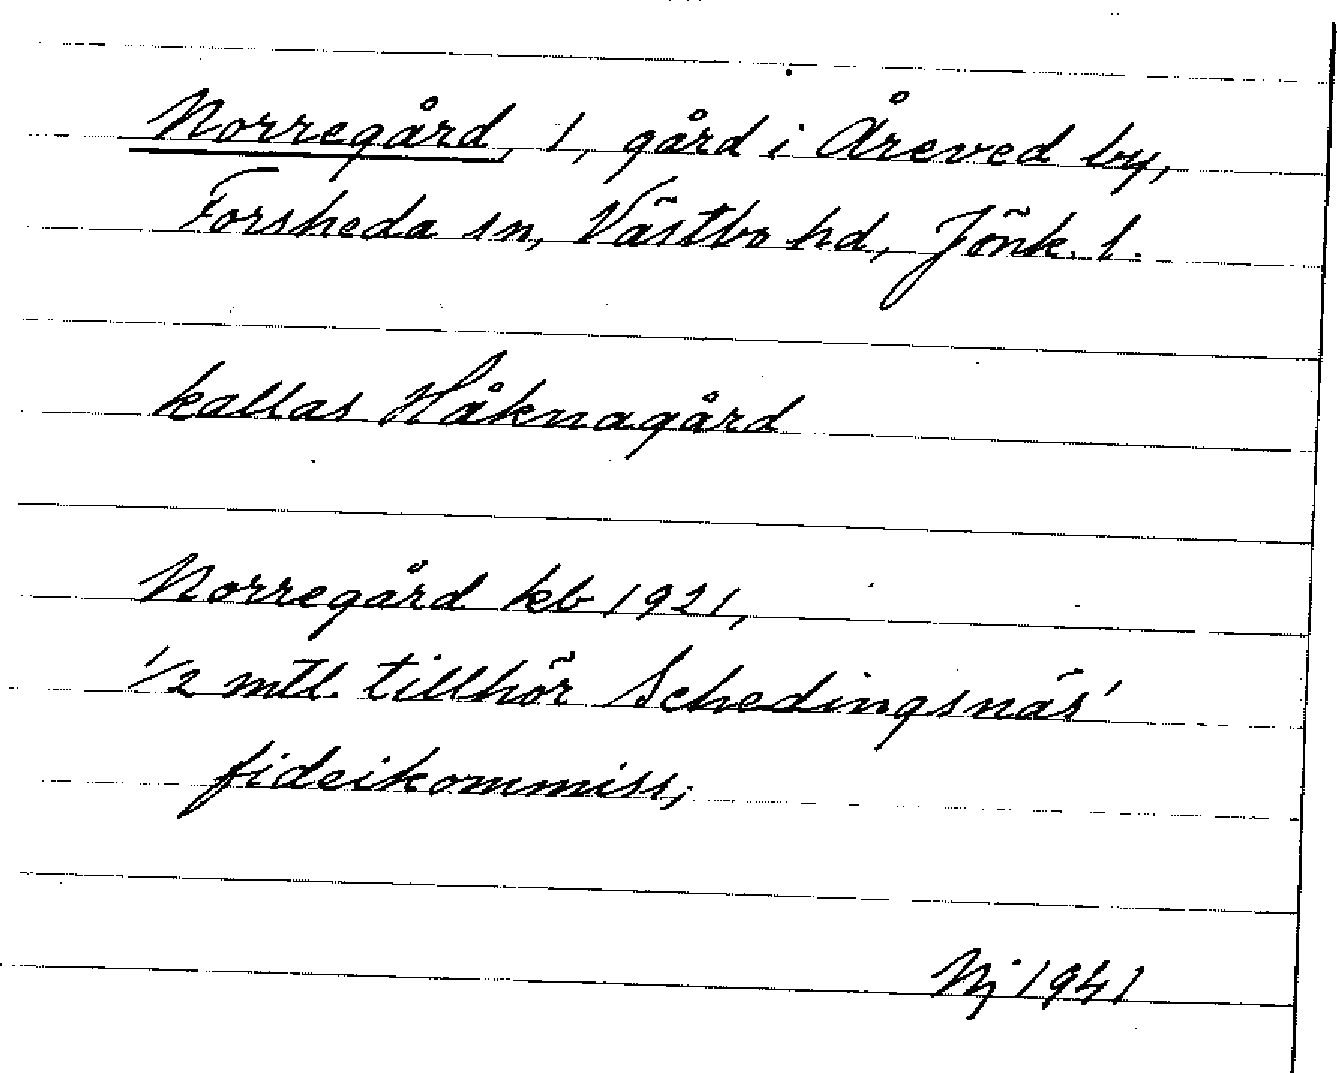 Norregård, 1, gård i Åreved by,
Forsheda sn, Västbo hd, Jönk. l.
kallas Håknagård
Norregård kb 1921,
1/2 mtl. tillhör Schedingsnäs'
fideikommiss;
Nj 1941